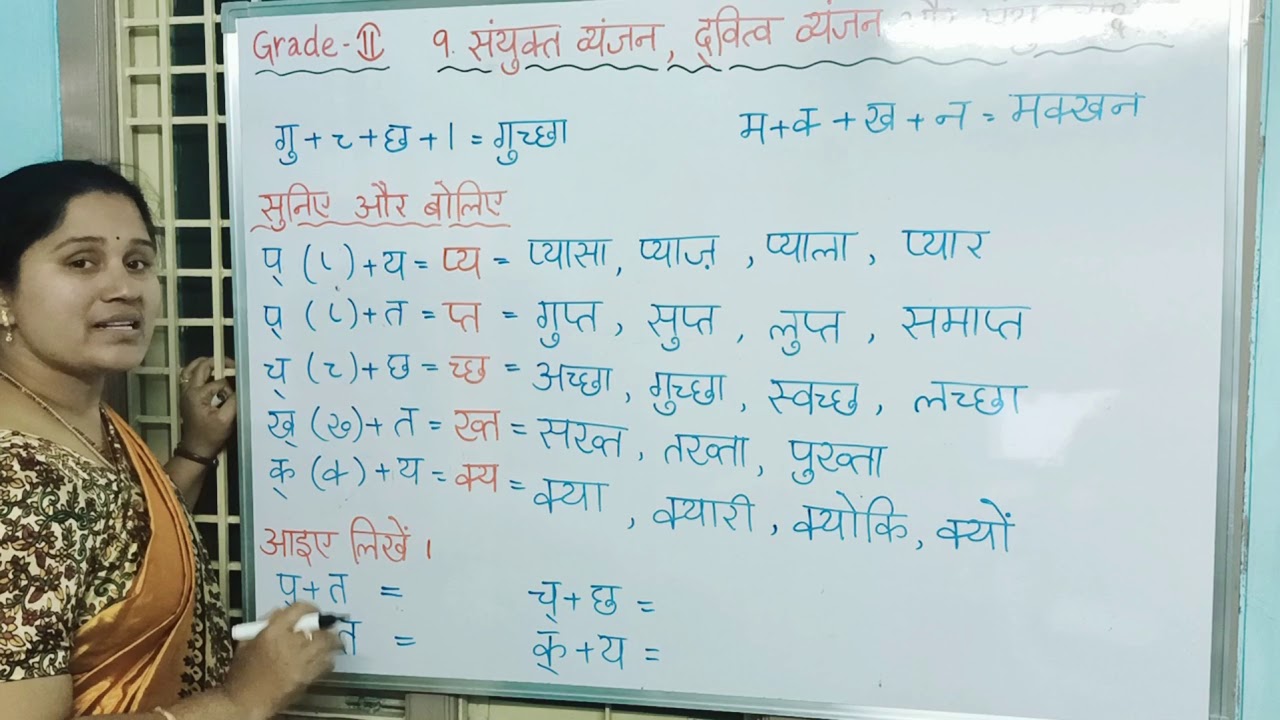 Grade-II १. संयुक्त व्यंजन, द्वित्व व्यंजन
गु + च् + छ + ा = गुच्छा म + क् + ख + न = मक्खन
सुनिए और बोलिए
प् (प्‍) + य = प्य = प्यासा, प्याज़, प्याला, प्यार
प् (प्‍) + त = प्त = गुप्त, सुप्त, लुप्त, समाप्त
च् (च्‍) + छ = च्छ = अच्छा, गुच्छा, स्वच्छ, लच्छा
ख् (ख्‍) + त = ख्त = सख्त, तख्ता, पुख्ता
क् (क्‍) + य = क्य = क्या, क्यारी, क्योंकि, क्यों
आइए लिखें।
प् + त = च् + छ =
त = क् + य =